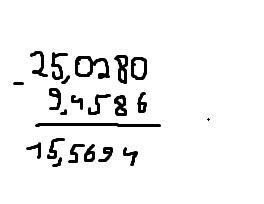 25,0280
- 9,4586
15,5694